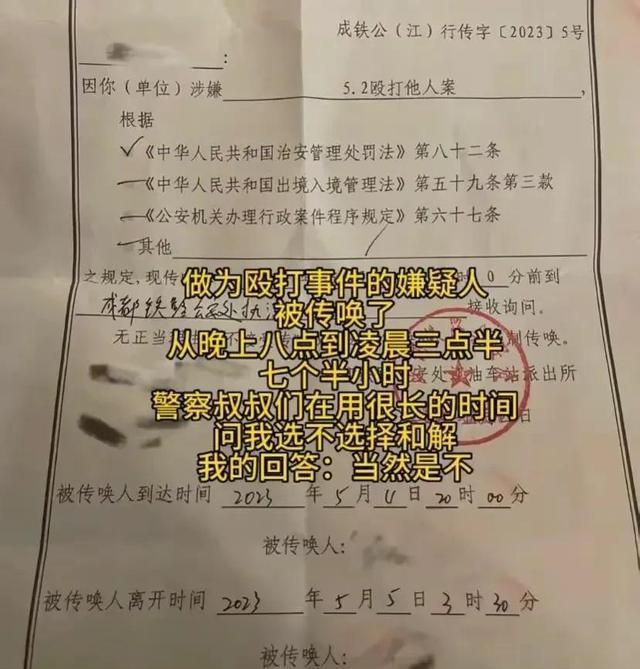 成铁公（江）行传字〔2023〕5号
因你（单位）涉嫌 5.2殴打他人案，
根据
✓《中华人民共和国治安管理处罚法》第八十二条
《中华人民共和国出境入境管理法》第五十九条第三款
《公安机关办理行政案件程序规定》第六十七条
其他
之规定，现传 时 0 分前到
做为殴打事件的嫌疑人
成都铁 公安处执法 接收询问。
被传唤了
无正当 制传唤。
从晚上八点到凌晨三点半
安处 油车站派出所
七个半小时
日
警察叔叔们在用很长的时间
问我选不选择和解
我的回答：当然是不
被传唤人到达时间 2023 年 5 月 4 日 20 时 00 分
被传唤人：
被传唤人离开时间 2023 年 5 月 5 日 3 时 30 分
被传唤人：